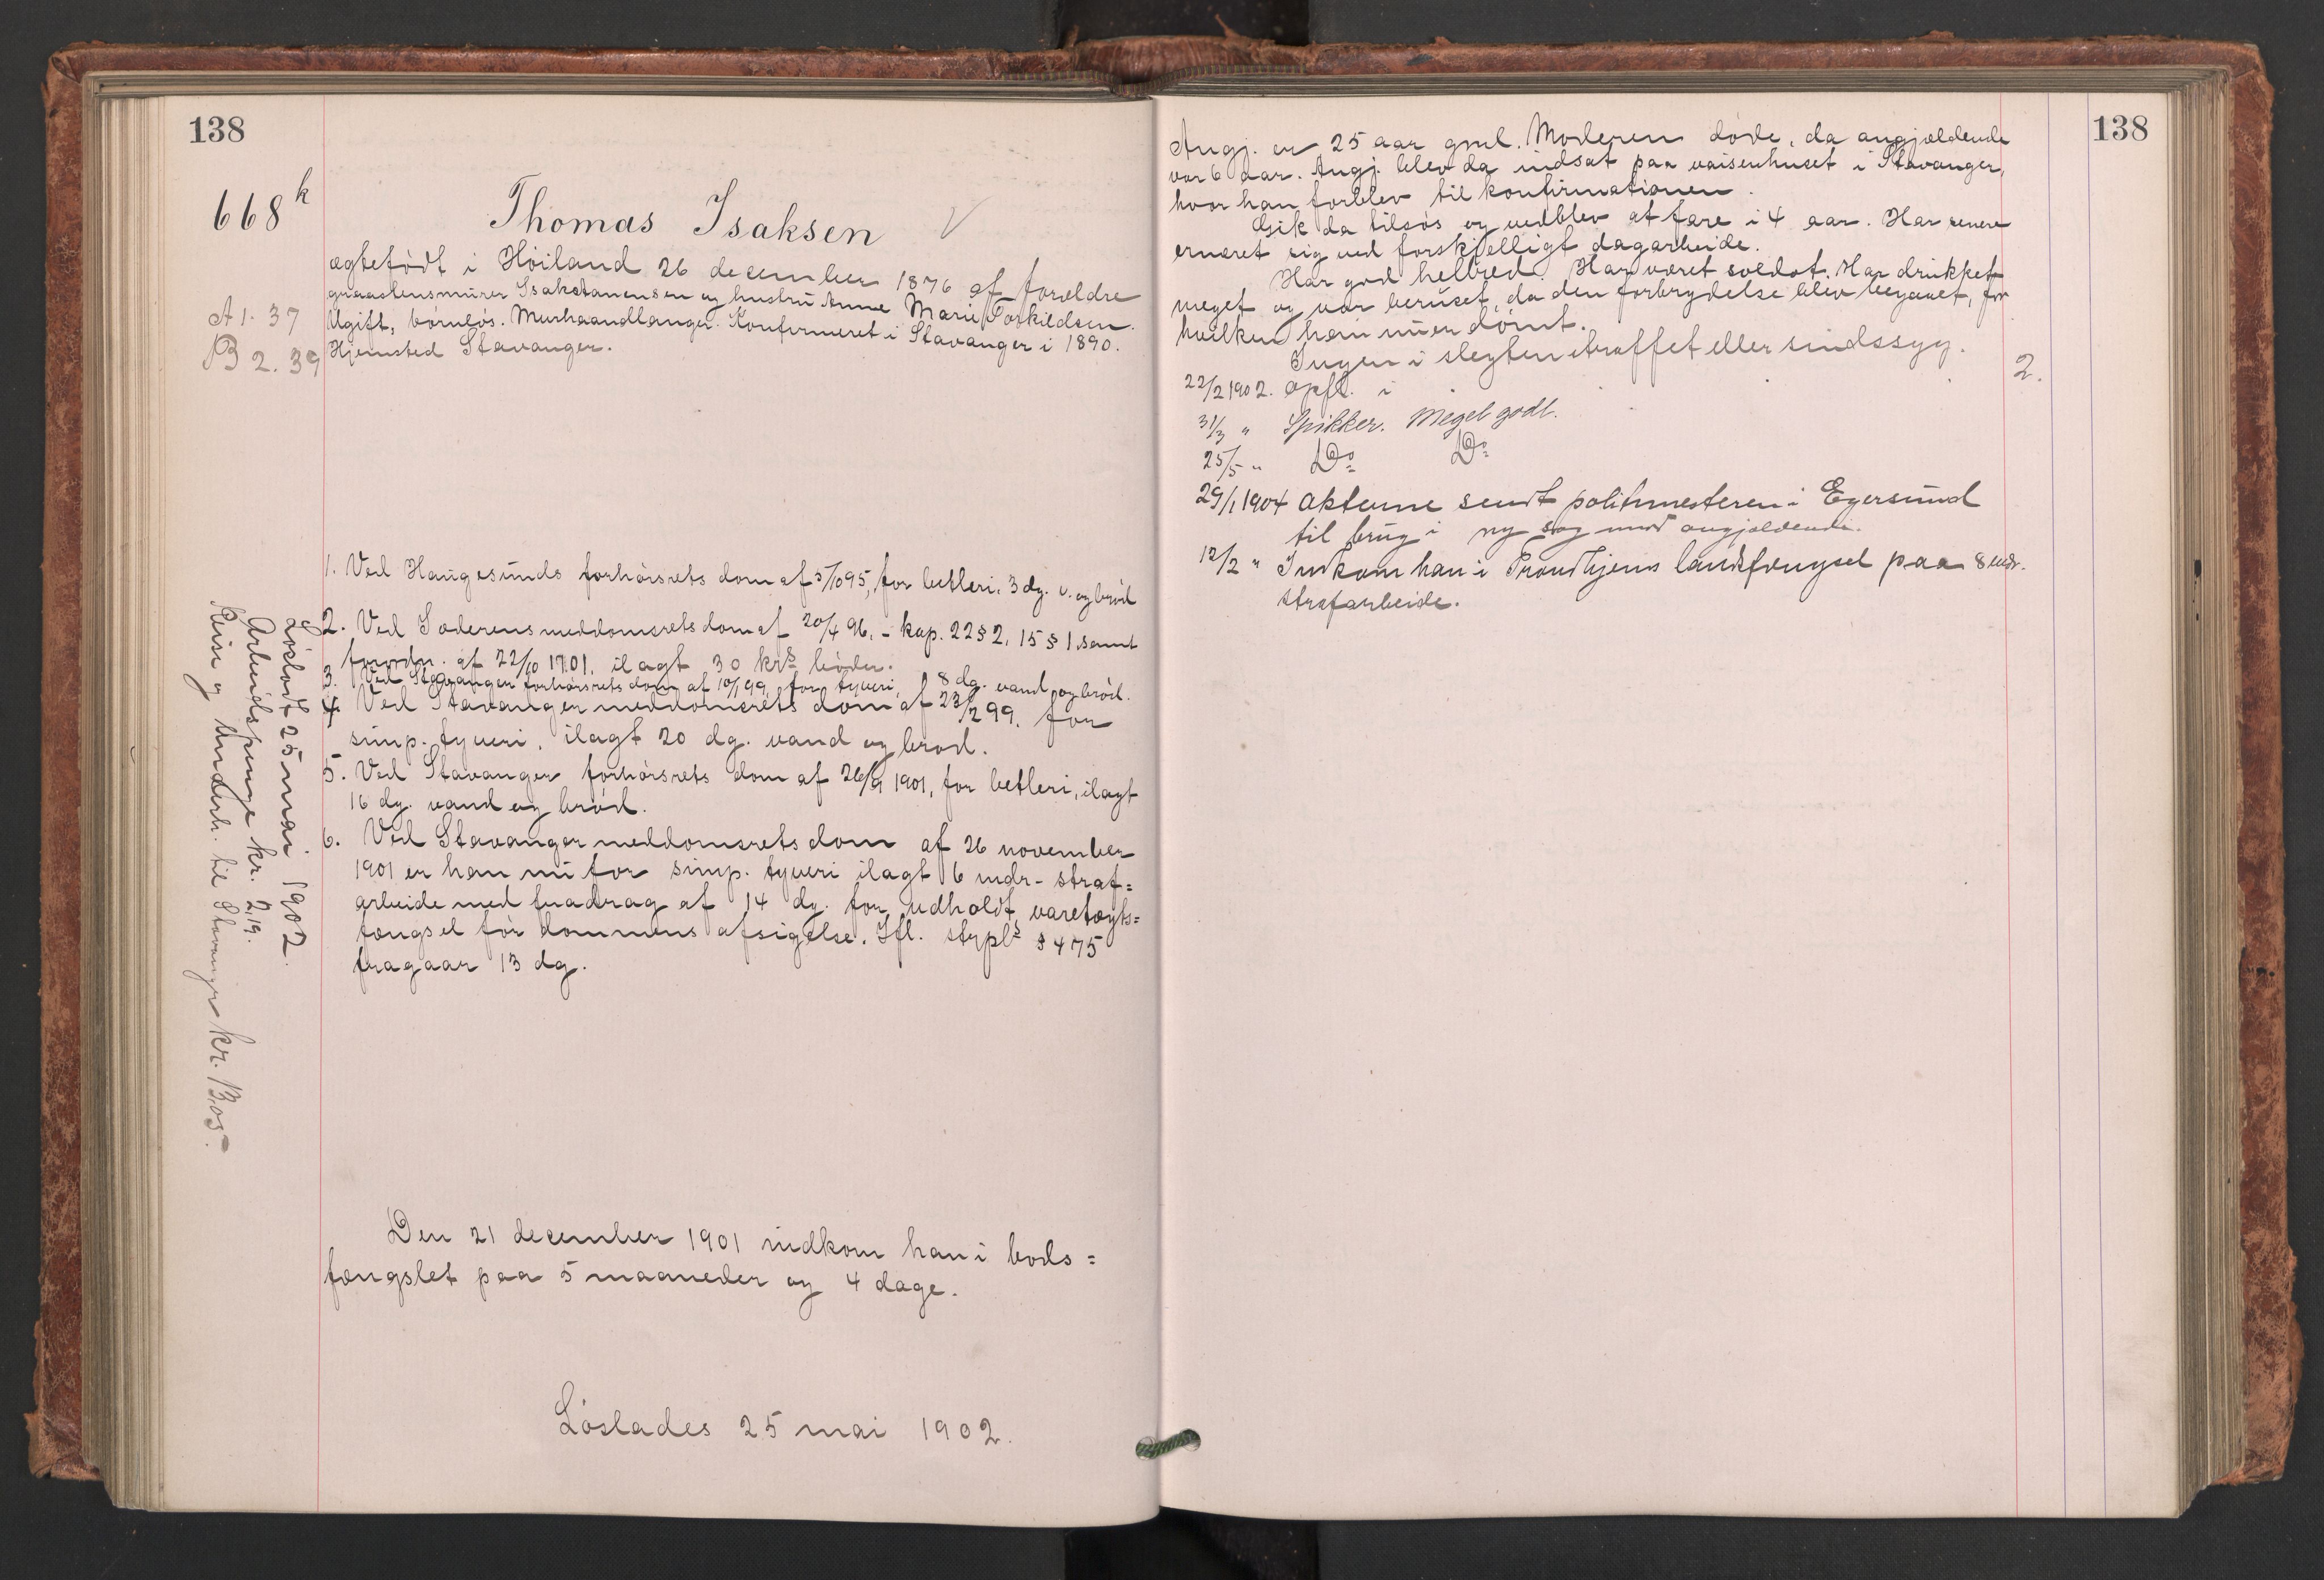 138
668 k
Thomas Isaksen V
ægtefödt i Höiland 26 december 1876 af forældre
graastensmurer Isak Hansen og hustru Anne Marie Torkildsen.
Ugift, börnlös. Murhaandlanger. Konfirmeret i Stavanger i 1890.
Hjemsted Stavanger.
A 1. 37
B 2. 39
1. Ved Haugesunds forhörsrets dom af 5/10 95, for betleri, 3 dg. v. og bröd
2. Ved Soderens meddomsrets dom af 20/4 96, - kap. 22 § 2, 15 § 1 samt
forordn. af 22/10 1701, ilagt 30 krs böder.
3. Ved Stavanger forhörsrets dom af 10/1 99, for tyveri, 8 dg. vand og bröd.
4. Ved Stavanger meddomsrets dom af 23/2 99, for
simp. tyveri, ilagt 20 dg. vand og bröd.
5. Ved Stavanger forhörsrets dom af 26/9 1901, for betleri, ilagt
16 dg. vand og bröd.
6. Ved Stavanger meddomsrets dom af 26 november
1901 er han nu for simp. tyveri ilagt 6 mdr. straf=
arbeide med fradrag af 14 dg. for udholdt varetægts=
fængsel för dommens afsigelse. Ifl. strpls § 475
fragaar 13 dg.
Löslodt 25 mai 1902.
Arbeidspenge kr. 2,19.
Reise og Underh. til Stavanger kr. 13,05.
Den 21 december 1901 indkom han i bods=
fængslet paa 5 maaneder og 4 dage.
Löslades 25 mai 1902.
138
Angj. er 25 aar gml. Moderen döde, da angjældende
var 6 aar. Angj. blev da indsat paa vaisenhuset i Stavanger,
hvor han forblev til konfirmationen.
Gik da tilsös og vedblev at fare i 4 aar. Har senere
ernæret sig ved forskjelligt dagarbeide.
Har god helbred. Har været soldat. Har drukket
meget og var beruset, da den forbrydelse blev begaaet, for
hvilken han nu er dömt.
Ingen i slegten straffet eller sindssyg.
22/2 1902. Opfl. i 2.
31/3 " Spikker. Meget godt.
25/5 " Do Do
29/1 1904 Akterne sendt politimesteren i Egersund
til brug i ny sag mod angjældende.
12/2 " Indkom han i Trondhjems landsfængsel paa 8 mdr.
strafarbeide.